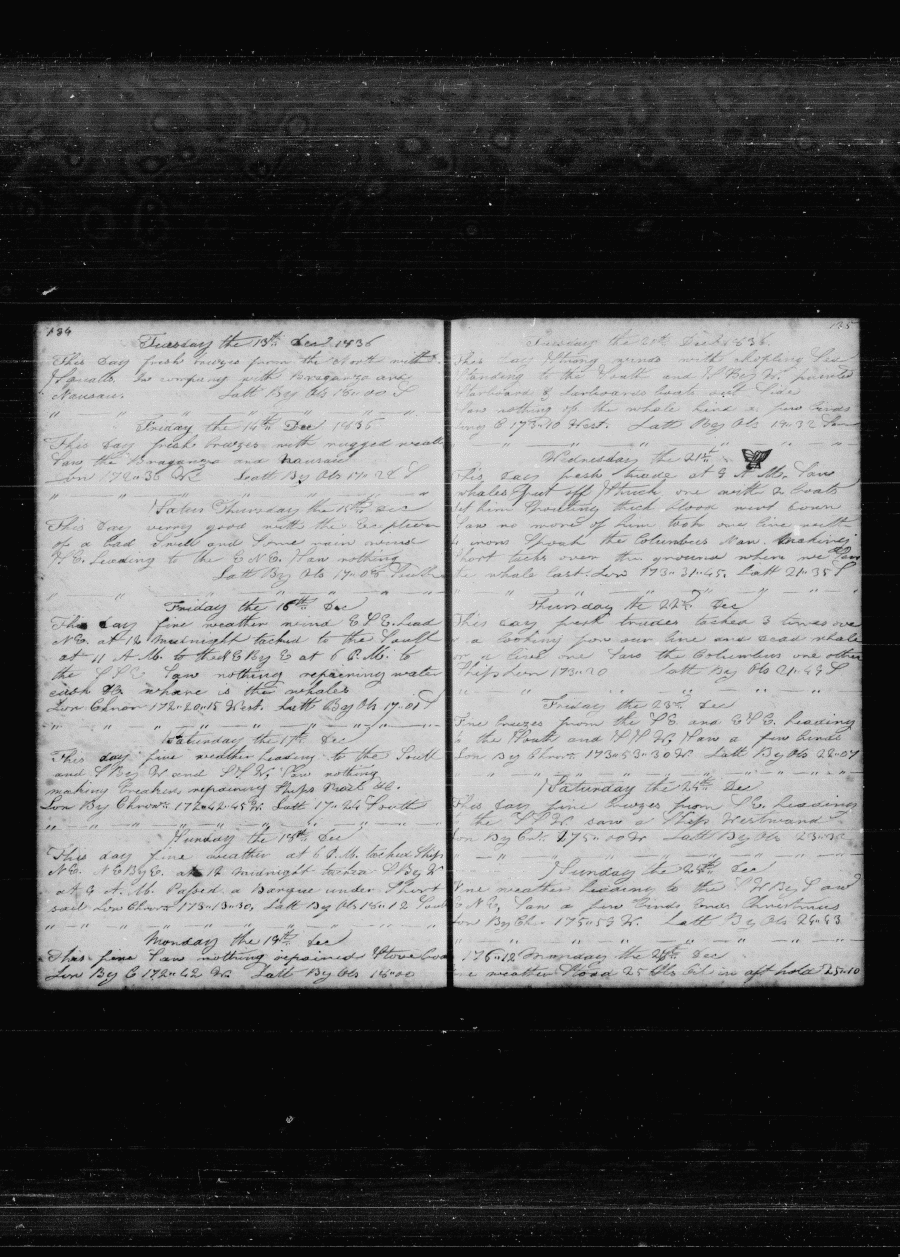 136
Tuesday the 13th Dec 1836
This day fresh breezes from the North with
Squalls In company with Braganza and
Nausau. Latt By Obs 18"00 S
Friday the 14th Dec 1836
This day fresh breezes with rugged weath
Saw the Braganza and Nausau
Lon 172"36 W Latt By Obs 17"28 S
Thursday the 15th Dec
This day verry good with the
of a bad Swell and Some rain wind
N.E. Leading to the E N E. Saw nothing
Latt By Obs 17"05 South
Friday the 16th Dec
This day fine weather wind E S E. Lead
N E. at 12 midnight tacked to the South
at 11 A M. to the N E By E at 6 P. M. to
the S S E Saw nothing repairening water
cask &c whare is the whales
Lon Chron 172"20"15 West. Latt By Obs 17"01 S
Saturday the 17th Dec
This day fine weather heading to the South
and S By W and S S W. Saw nothing
making repairing Ships Sails &c.
Lon By Chron 172"42"45 W. Latt 17"24 South
Sunday the 18th Dec
This day fine weather at 6 P. M. tacked Ships
N E. N E By E. at 12 midnight tacked S By W
at 9 A. M. Passed a Barque under Short
sail Lon Chron 173"13"30, Latt By Obs 18"12 South
Monday the 19th Dec
This fine Saw nothing repaired Stove boa
Lon By C 172"42 W. Latt By Obs 18"00
135
Tuesday the 20th Dec 1836.
This day Strong winds with chopling Sea
Standing to the South and S By W. painted
Starboard & Larboard boats out Side
Saw nothing of the whale kind a few birds
173"10 West. Latt By Obs 19"32 Sou
Wednesday the 21st
This day fresh trade at 9 A M. Saw
whales Put off Struck one with 2 boats
et him Spouting thick blood went down
Saw no more of him took one line with
irons Spoak the Columbus Nan. makeing
Short tacks over the ground where we Saw
the whale last Lon 173"31"45. Latt 21"35 S
Thursday the 22nd Dec
This day fresh trades tacked 3 times ove
a looking for our line and dead whale
or a live one Saw the Columbus one other
Ship Lon 173"20 Latt By Obs 21"49 S
Friday the 23rd Dec
Fine breezes from the S E. and E S E. heading
to the South and S S W. Saw a few birds
Lon By Chron 173"53"30 W Latt By Obs 22"07
Saturday the 24th Dec
This day fine breezes from S E. heading
the S S W. saw a Ship Westward
Lon By Chr. 175"00 W Latt By Obs 23"38
Sunday the 25th Dec
Fine weather heading to the S W By S and
N E, Saw a few Birds Ends Christmas
Lon By Chr 175"53 W. Latt By Obs 24"43
176"12 Monday the 26th Dec
ne weather Stood 25 Bbls Oil in aft hold 25"10